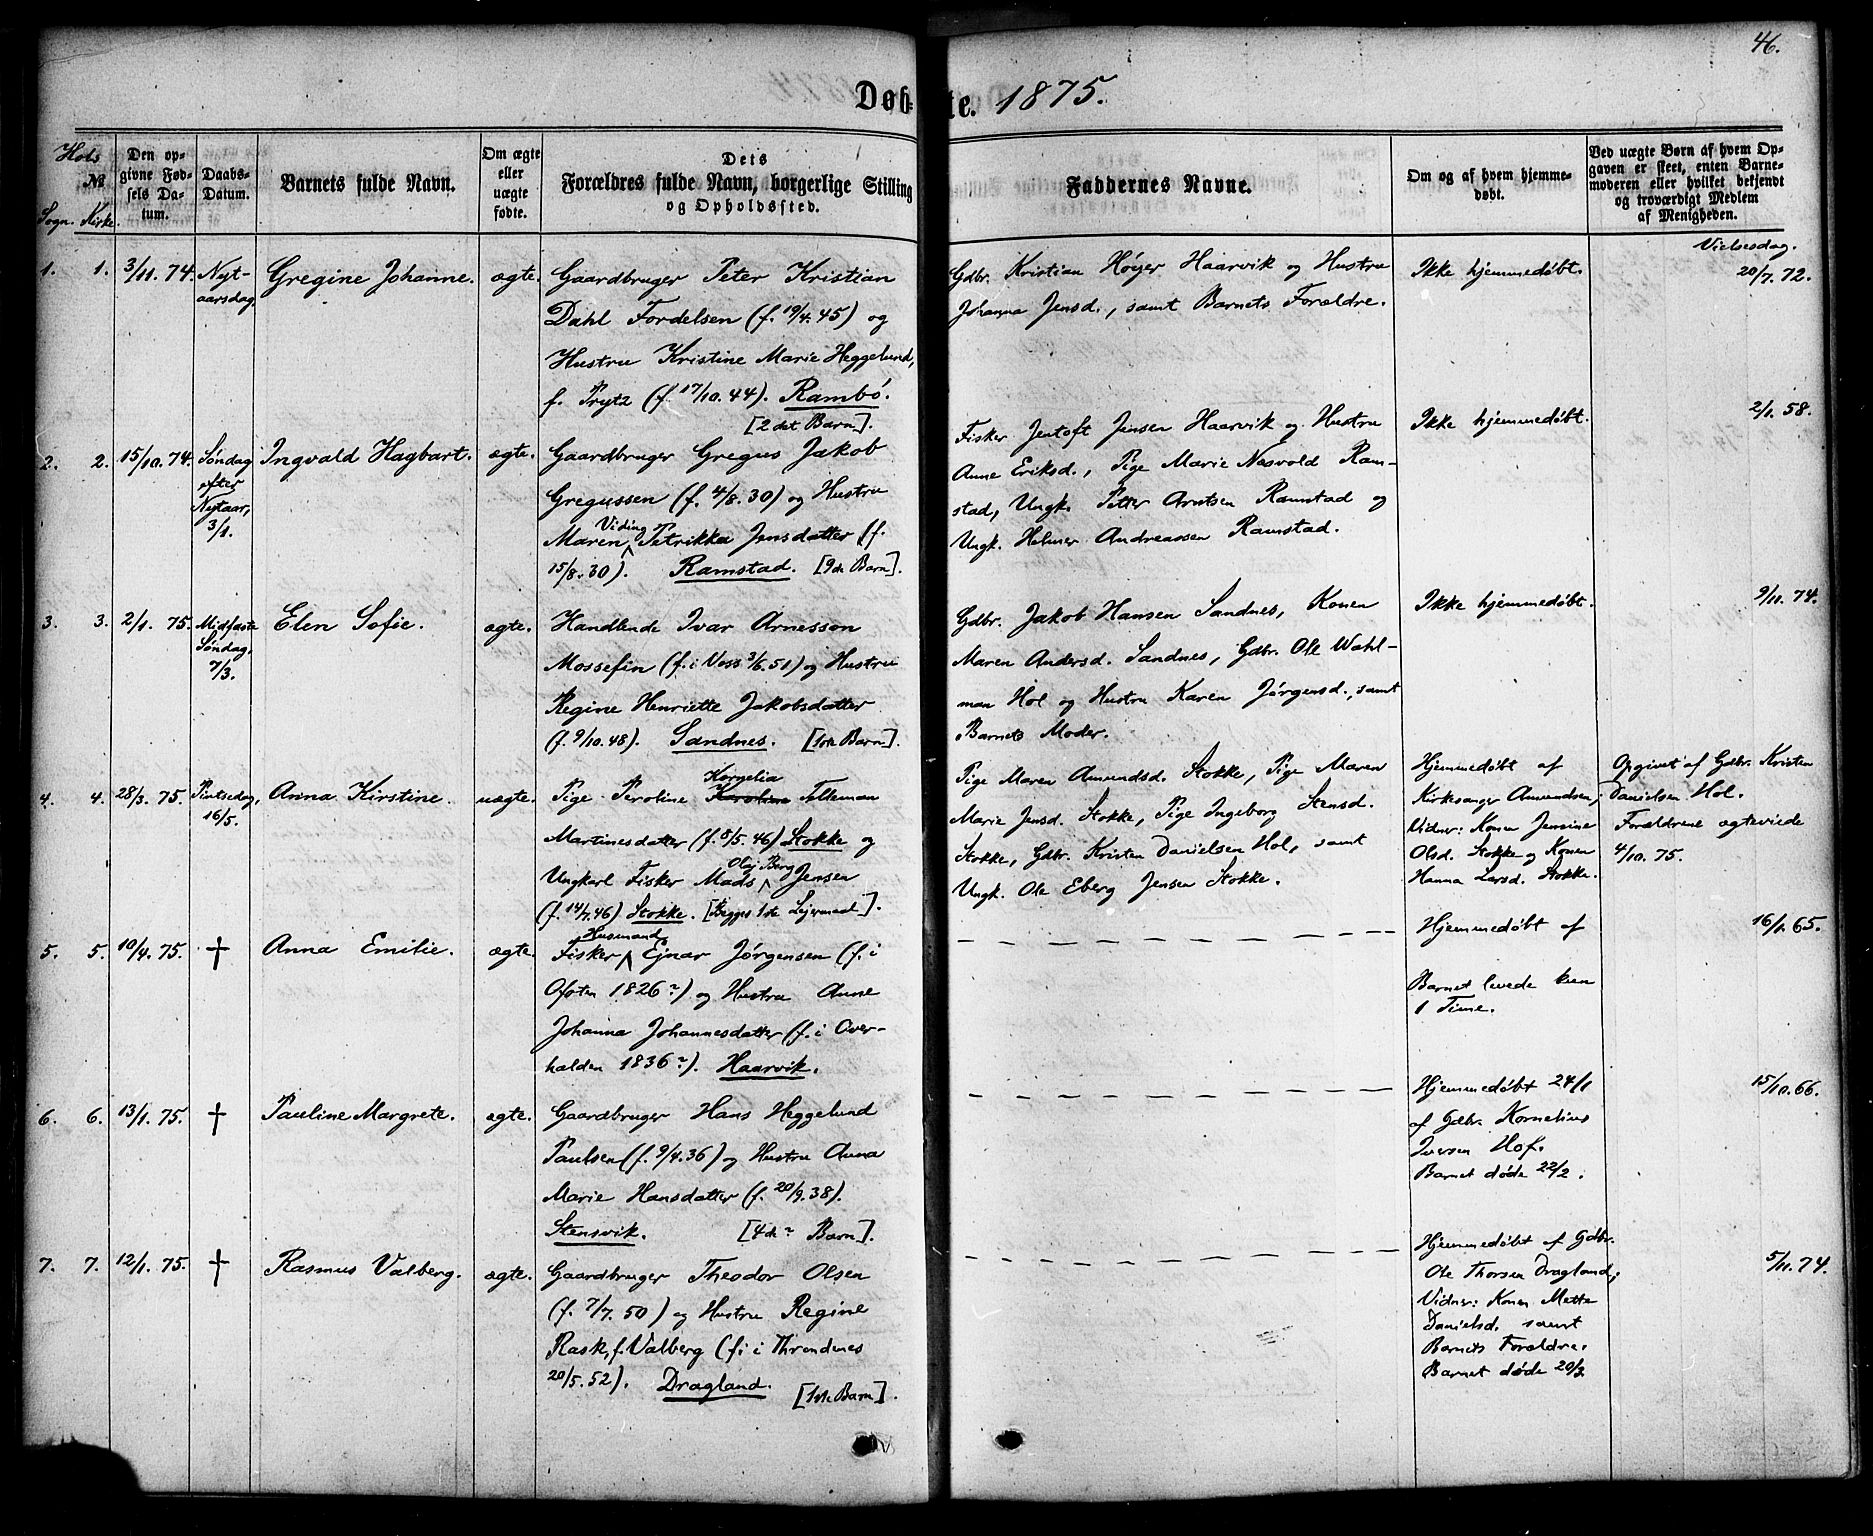 46.
Døb-te. 1875.
Hols
№
Sogn. Kirke.
Den op-
givne Fød-
sels Da-
tum.
Daabs-
Datum.
Barnets fulde Navn.
Om ægte
eller
uægte
fødte.
Dets
Forældres fulde Navn, borgerlige Stilling
og Opholdssted.
Faddernes Navne.
Om og af hvem hjemme-
døbt.
Ved uægte Børn af hvem Op-
gaven er skeet, enten Barne-
moderen eller hvilket bekjendt
og troværdigt Medlem
af Menigheden.
Vielsesdag.
1. 1. 3/11. 74. Nyt-
aarsdag
Gregine Johanne.
ægte.
Gaardbruger Peter Kristian
Dahl Fordelsen (f. 19/4. 45) og
Hustru Kristine Marie Heggelund,
f. Prytz (f. 17/10. 44). Rambø.
[2det Barn].
Gdbr. Kristian Høyer Haarvik og Hustru
Johanna Jensd., samt Barnets Forældre.
Ikke hjemmedøbt.
20/7. 72.
2. 2. 15/10. 74. Søndag
efter
Nytaar,
3/1.
Ingvald Hagbart.
ægte.
Gaardbruger Gregus Jakob
Gregussen (f. 4/8. 30) og Hustru
Maren Viding Petrikka Jensdatter (f.
15/8. 30). Ramstad. [9de Barn].
Fisker Jentoft Jensen Haarvik og Hustru
Anne Eriksd., Pige Marie Næsvold Ram-
stad, Ungk. Petter Arntsen Ramstad og
Ungk. Helmer Andreassen Ramstad.
Ikke hjemmedøbt.
2/1. 58.
3. 3. 2/1. 75. Midfaste
Søndag,
7/3.
Elen Sofie.
ægte.
Handlende Ivar Arnesson
Mossefin (f. i Voss 3/6. 51) og Hustru
Regine Henriette Jakobsdatter
(f. 9/10. 48). Sandnes. [1ste Barn].
Gdbr. Jakob Hansen Sandnes, Konen
Maren Andersd. Sandnes, Gdbr. Ole Wahl-
man Hol og Hustru Karen Jørgensd., samt
Barnets Moder.
Ikke hjemmedøbt.
9/11. 74.
4. 4. 28/3. 75. Pintsedag,
16/5.
Anna Kirstine.
uægte.
Pige Peroline Karoline Kornelia Tilleman
Martinesdatter (f. 8/5. 46) Stokke og
Ungkarl Fisker Mads Olaj Berg Jensen
(f. 14/7. 46) Stokke. [Begges 1ste Lejermaal].
Pige Maren Amundsd. Stokke, Pige Maren
Marie Jensd. Stokke, Pige Ingeborg Stensd.
Stokke, Gdbr. Kristen Danielsen Hol, samt
Ungk. Ole Eberg Jensen Stokke.
Hjemmedøbt af
Kirkesanger Amundsen,
Vidner: Konen Jensine
Olsd. Stokke og Konen
Hanna Larsd. Stokke.
Opgivet af Gdbr. Kristen
Danielsen Hol.
Forældrene ægteviede
4/10. 75.
5. 5. 10/4. 75. †
Anna Emilie.
ægte.
Fisker Husmand Ejnar Jørgensen (f. i
Ofoten 1826?) og Hustru Anne
Johanna Johannesdatter (f. i Over-
halden 1836?). Haarvik.
Hjemmedøbt af
Barnet levede kun
1 Time.
16/1. 65.
6. 6. 13/1. 75. †
Pauline Margrete.
ægte.
Gaardbruger Hans Heggelund
Paulsen (f. 9/4. 36) og Hustru Anna
Marie Hansdatter (f. 20/9. 38).
Stensvik. [4de? Barn].
Hjemmedøbt 24/1
af Gdbr. Kornelius
Iversen Hof.
Barnet døde 22/2.
15/10. 66.
7. 7. 12/1. 75. †
Rasmus Valberg.
ægte.
Gaardbruger Theodor Olsen
(f. 7/7. 50) og Hustru Regine
Rask, f. Valberg (f. i Throndenes
20/5. 52). Dragland. [1ste Barn].
Hjemmedøbt af Gdbr.
Ole Thorsen Dragland,
Vidner: Konen Mette
Danielsd. samt
Barnets Forældre.
Barnet døde 20/3
5/11. 74.